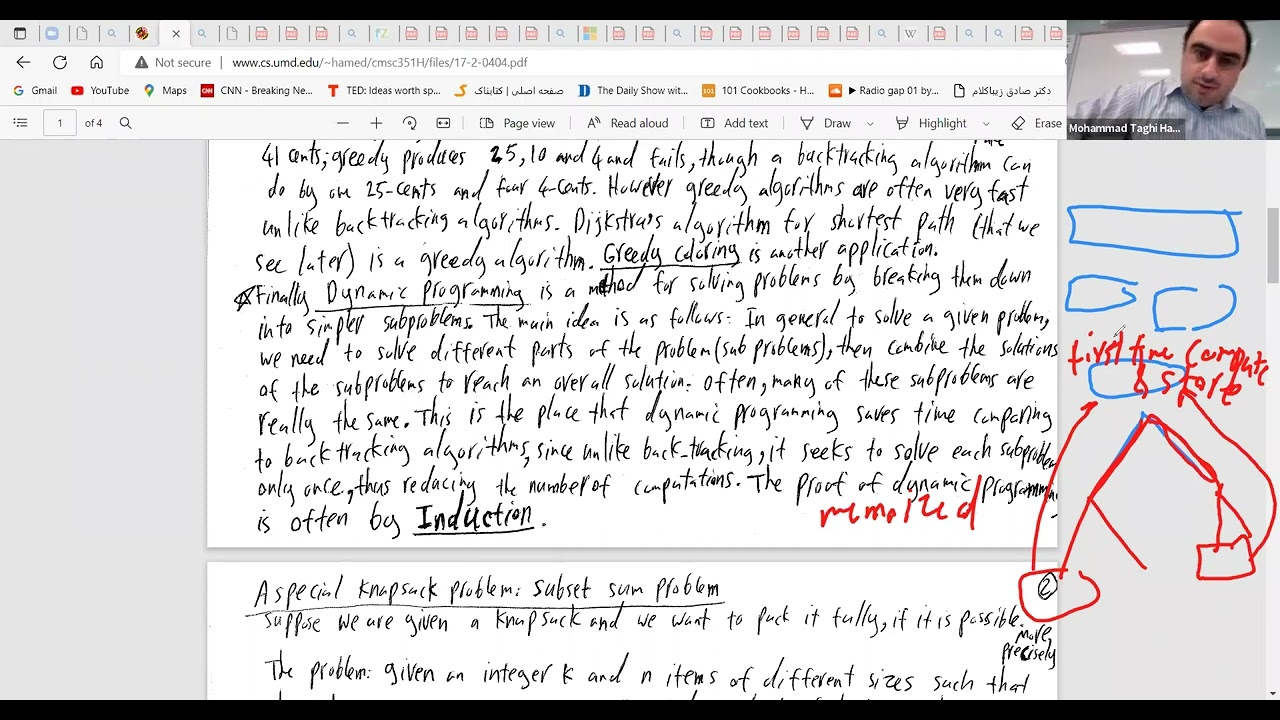 Not secure
www.cs.umd.edu/~hamed/cmsc351H/files/17-2-0404.pdf
Gmail YouTube Maps CNN - Breaking Ne... TED: Ideas worth sp... صفحه اصلی | کتابناک The Daily Show wit... 101 Cookbooks - H... Radio gap 01 by... دکتر صادق زیباکلام
1 of 4 Page view Read aloud Add text Draw Highlight Erase
Mohammad Taghi Ha...
41 cents; greedy produces 25, 10 and 4 and fails, though a backtracking algorithm can
do by one 25-cents and four 4-cents. However greedy algorithms are often very fast
unlike backtracking algorithms. Dijkstra's algorithm for shortest path (that we
see later) is a greedy algorithm. Greedy coloring is another application.
Finally Dynamic programming is a method for solving problems by breaking them down
into simpler subproblems. The main idea is as follows: In general to solve a given problem,
we need to solve different parts of the problem (subproblems), then combine the solutions
of the subproblems to reach an overall solution. Often, many of these subproblems are
really the same. This is the place that dynamic programming saves time comparing
to backtracking algorithms, since unlike back-tracking, it seeks to solve each subproblem
only once, thus reducing the number of computations. The proof of dynamic programming
is often by Induction.
memoized
first time compute
& store
2
A special Knapsack problem: Subset sum problem
Suppose we are given a knapsack and we want to pack it fully, if it is possible.
more
precisely
The problem: given an integer k and n items of different sizes such that